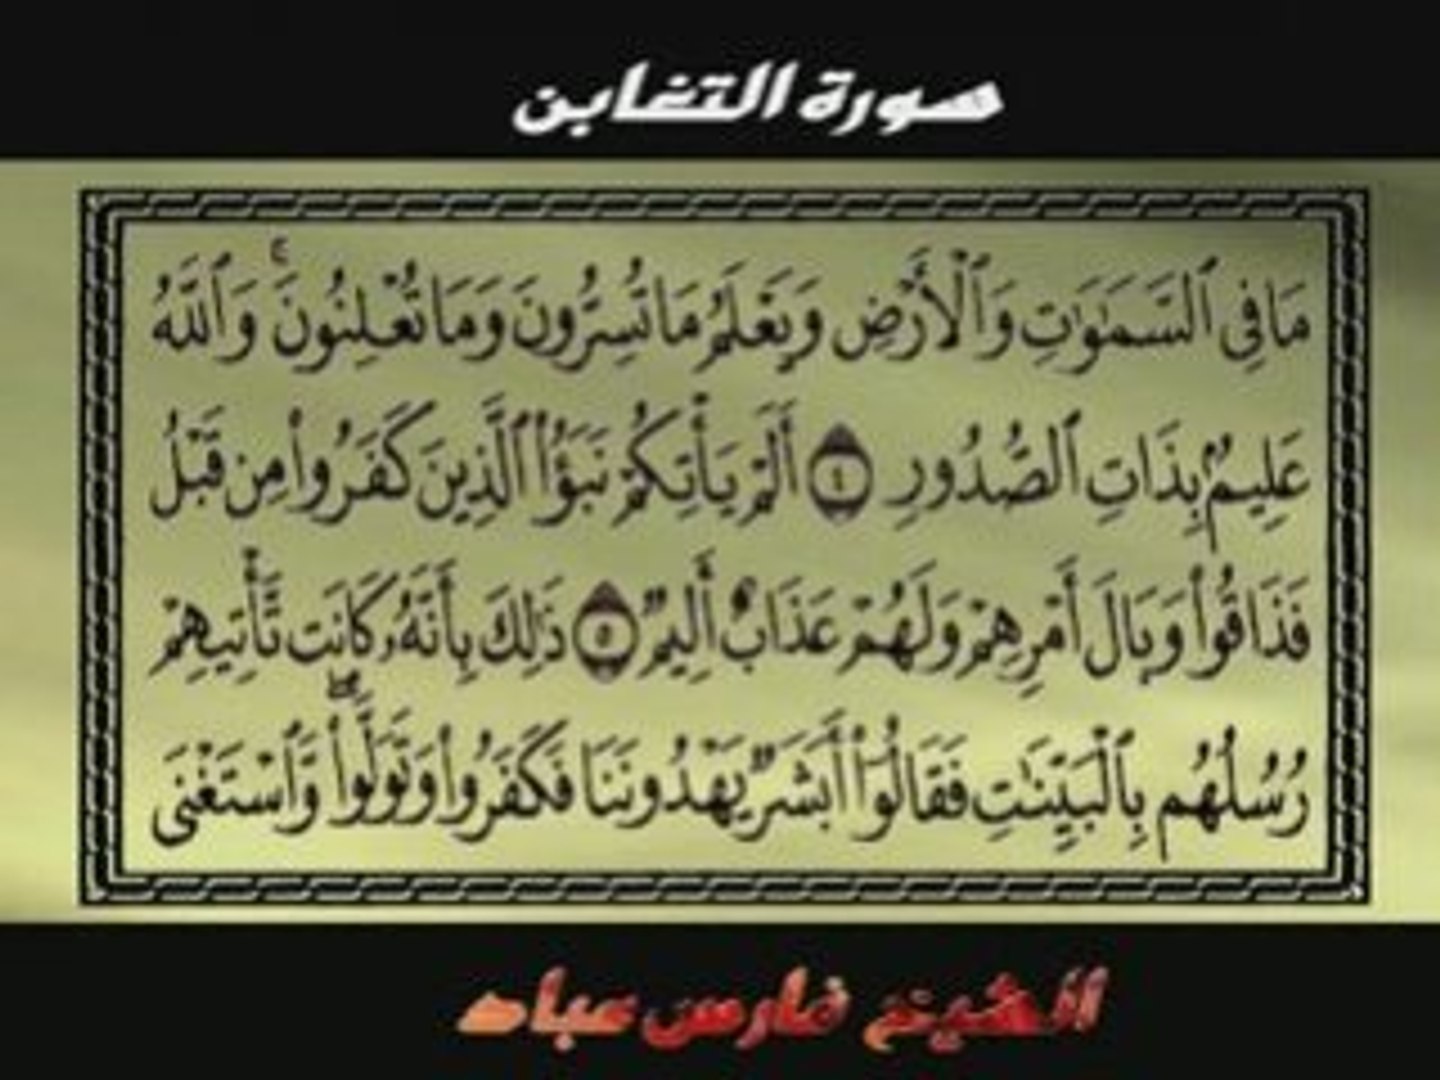 سورة التغابن
مَا فِي ٱلسَّمَٰوَٰتِ وَٱلْأَرْضِ وَيَعْلَمُ مَا تُسِرُّونَ وَمَا تُعْلِنُونَ ۚ وَٱللَّهُ
عَلِيمٌۢ بِذَاتِ ٱلصُّدُورِ ٤ أَلَمْ يَأْتِكُمْ نَبَؤُا۟ ٱلَّذِينَ كَفَرُوا۟ مِن قَبْلُ
فَذَاقُوا۟ وَبَالَ أَمْرِهِمْ وَلَهُمْ عَذَابٌ أَلِيمٌ ٥ ذَٰلِكَ بِأَنَّهُۥ كَانَت تَّأْتِيهِمْ
رُسُلُهُم بِٱلْبَيِّنَٰتِ فَقَالُوٓا۟ أَبَشَرٌ يَهْدُونَنَا فَكَفَرُوا۟ وَتَوَلَّوا۟ ۖ وَّٱسْتَغْنَى
الشيخ فارس عباد